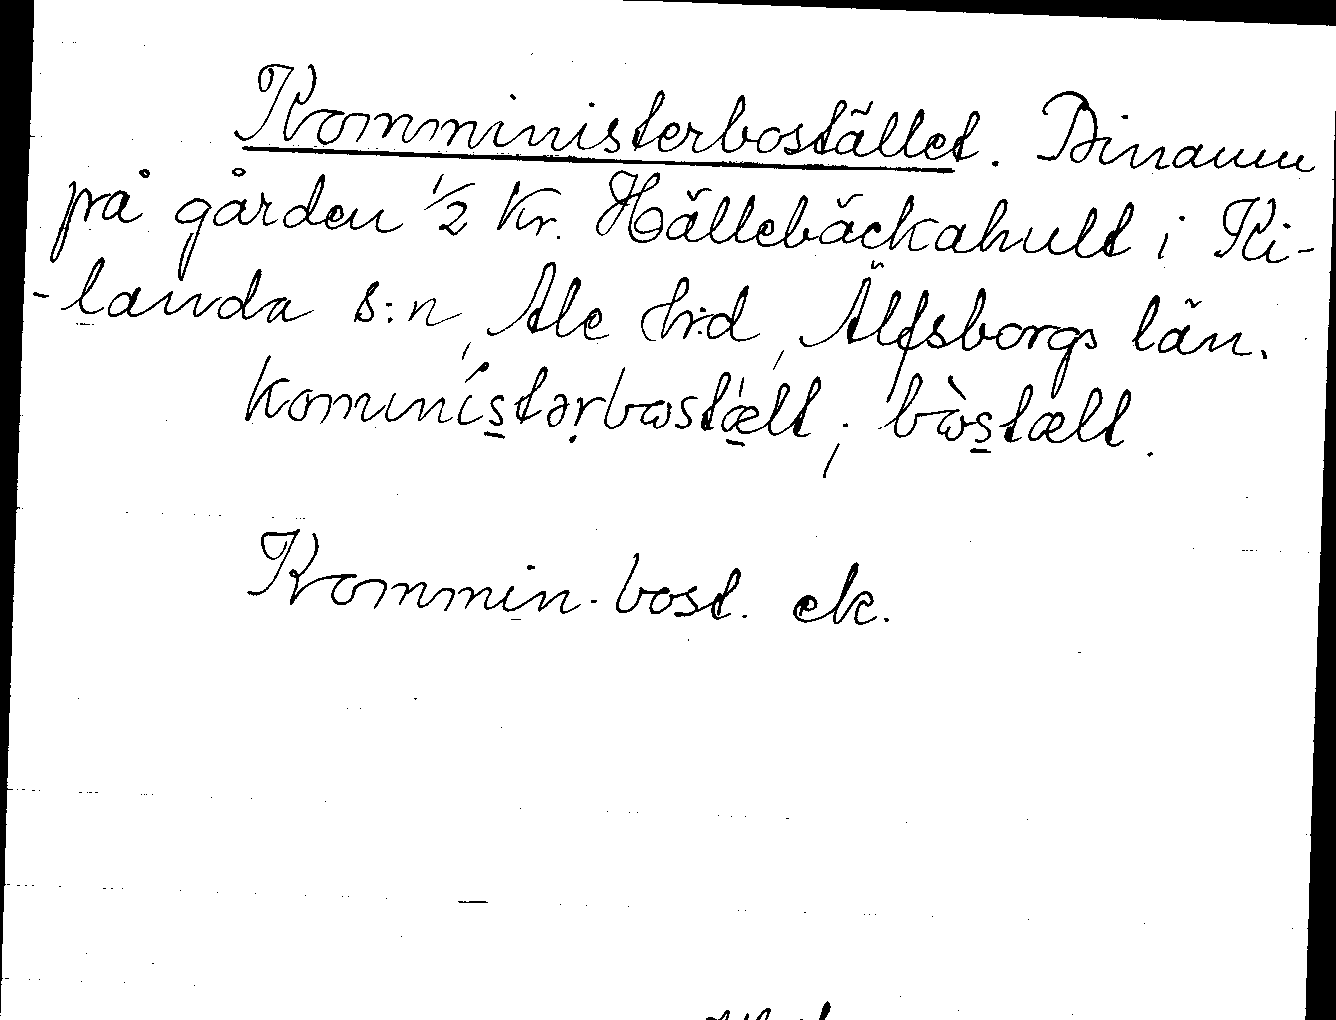 Komministerbostället. Binamn
på gården 1/2 kr. Hällebäckahult i Ki-
-landa s:n, Ale hrd, Älfsborgs län.
komínìstərbωstǽllt; bὼstællt.
Kommin. bost. ek.